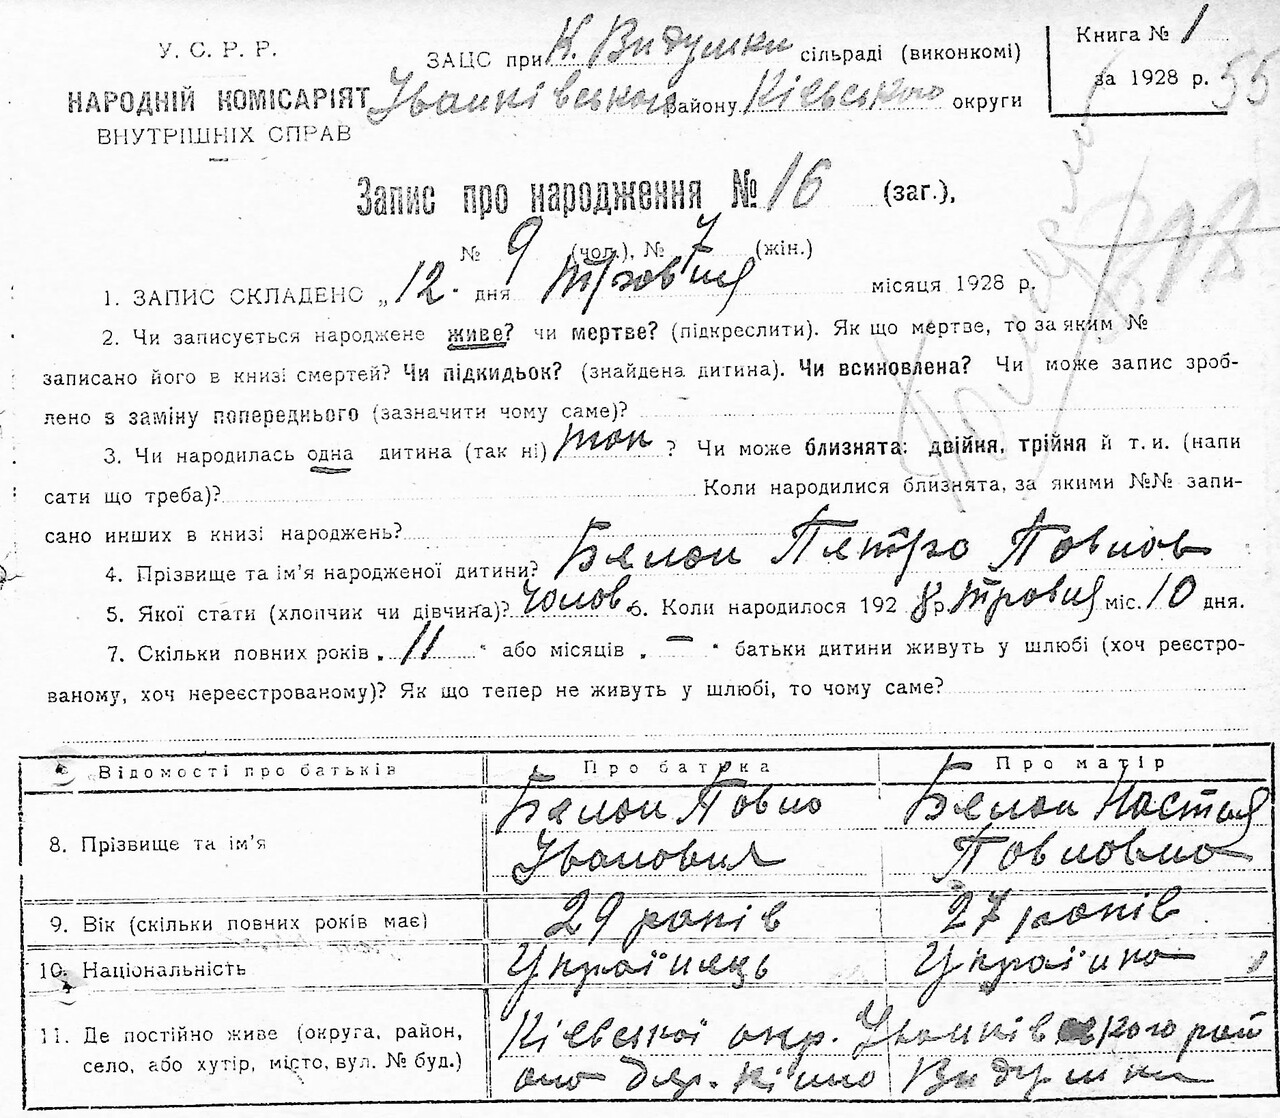 У. С. Р. Р.
НАРОДНІЙ КОМІСАРІЯТ
ВНУТРІШНІХ СПРАВ
ЗАЦС при К. Видумки сільраді (виконкомі)
Іванківського району Кіевського округи
Книга № 1
за 1928 р. 55
Запис про народження № 16 (заг.),
№ 9 (чол.), № 7 (жін.)
1. ЗАПИС СКЛАДЕНО „12. дня Тровня місяця 1928 р.
2. Чи записується народжене живе? чи мертве? (підкреслити). Як що мертве, то за яким №
записано його в книзі смертей? Чи підкидьок? (знайдена дитина). Чи всиновлена? Чи може запис зроб-
лено з заміну попереднього (зазначити чому саме)?
3. Чи народилась одна дитина (так ні) так ? Чи може близнята: двійня, трійня й т. и. (напи
сати що треба)? Коли народилися близнята, за якими №№ запи-
сано инших в книзі народжень?
4. Прізвище та ім'я народженої дитини? Белак Петро Повлов
5. Якої стати (хлопчик чи дівчина)? Чолов. 6. Коли народилося 1928 р. Тровня міс. 10 дня.
7. Скільки повних років „ 11 " або місяців „ — " батьки дитини живуть у шлюбі (хоч реєстро-
ваному, хоч нереєстрованому)? Як що тепер не живуть у шлюбі, то чому саме?
Відомості про батьків Про батька Про матір
8. Прізвище та ім'я
Белак Повло Белак Настя
Іванович Повловна
9. Вік (скільки повних років має) 29 років 27 років
10. Національність Українець Українка
11. Де постійно живе (округа, район,
село, або хутір, місто, вул. № буд.)
Кіевської окр. Іванківського рай
Видумка